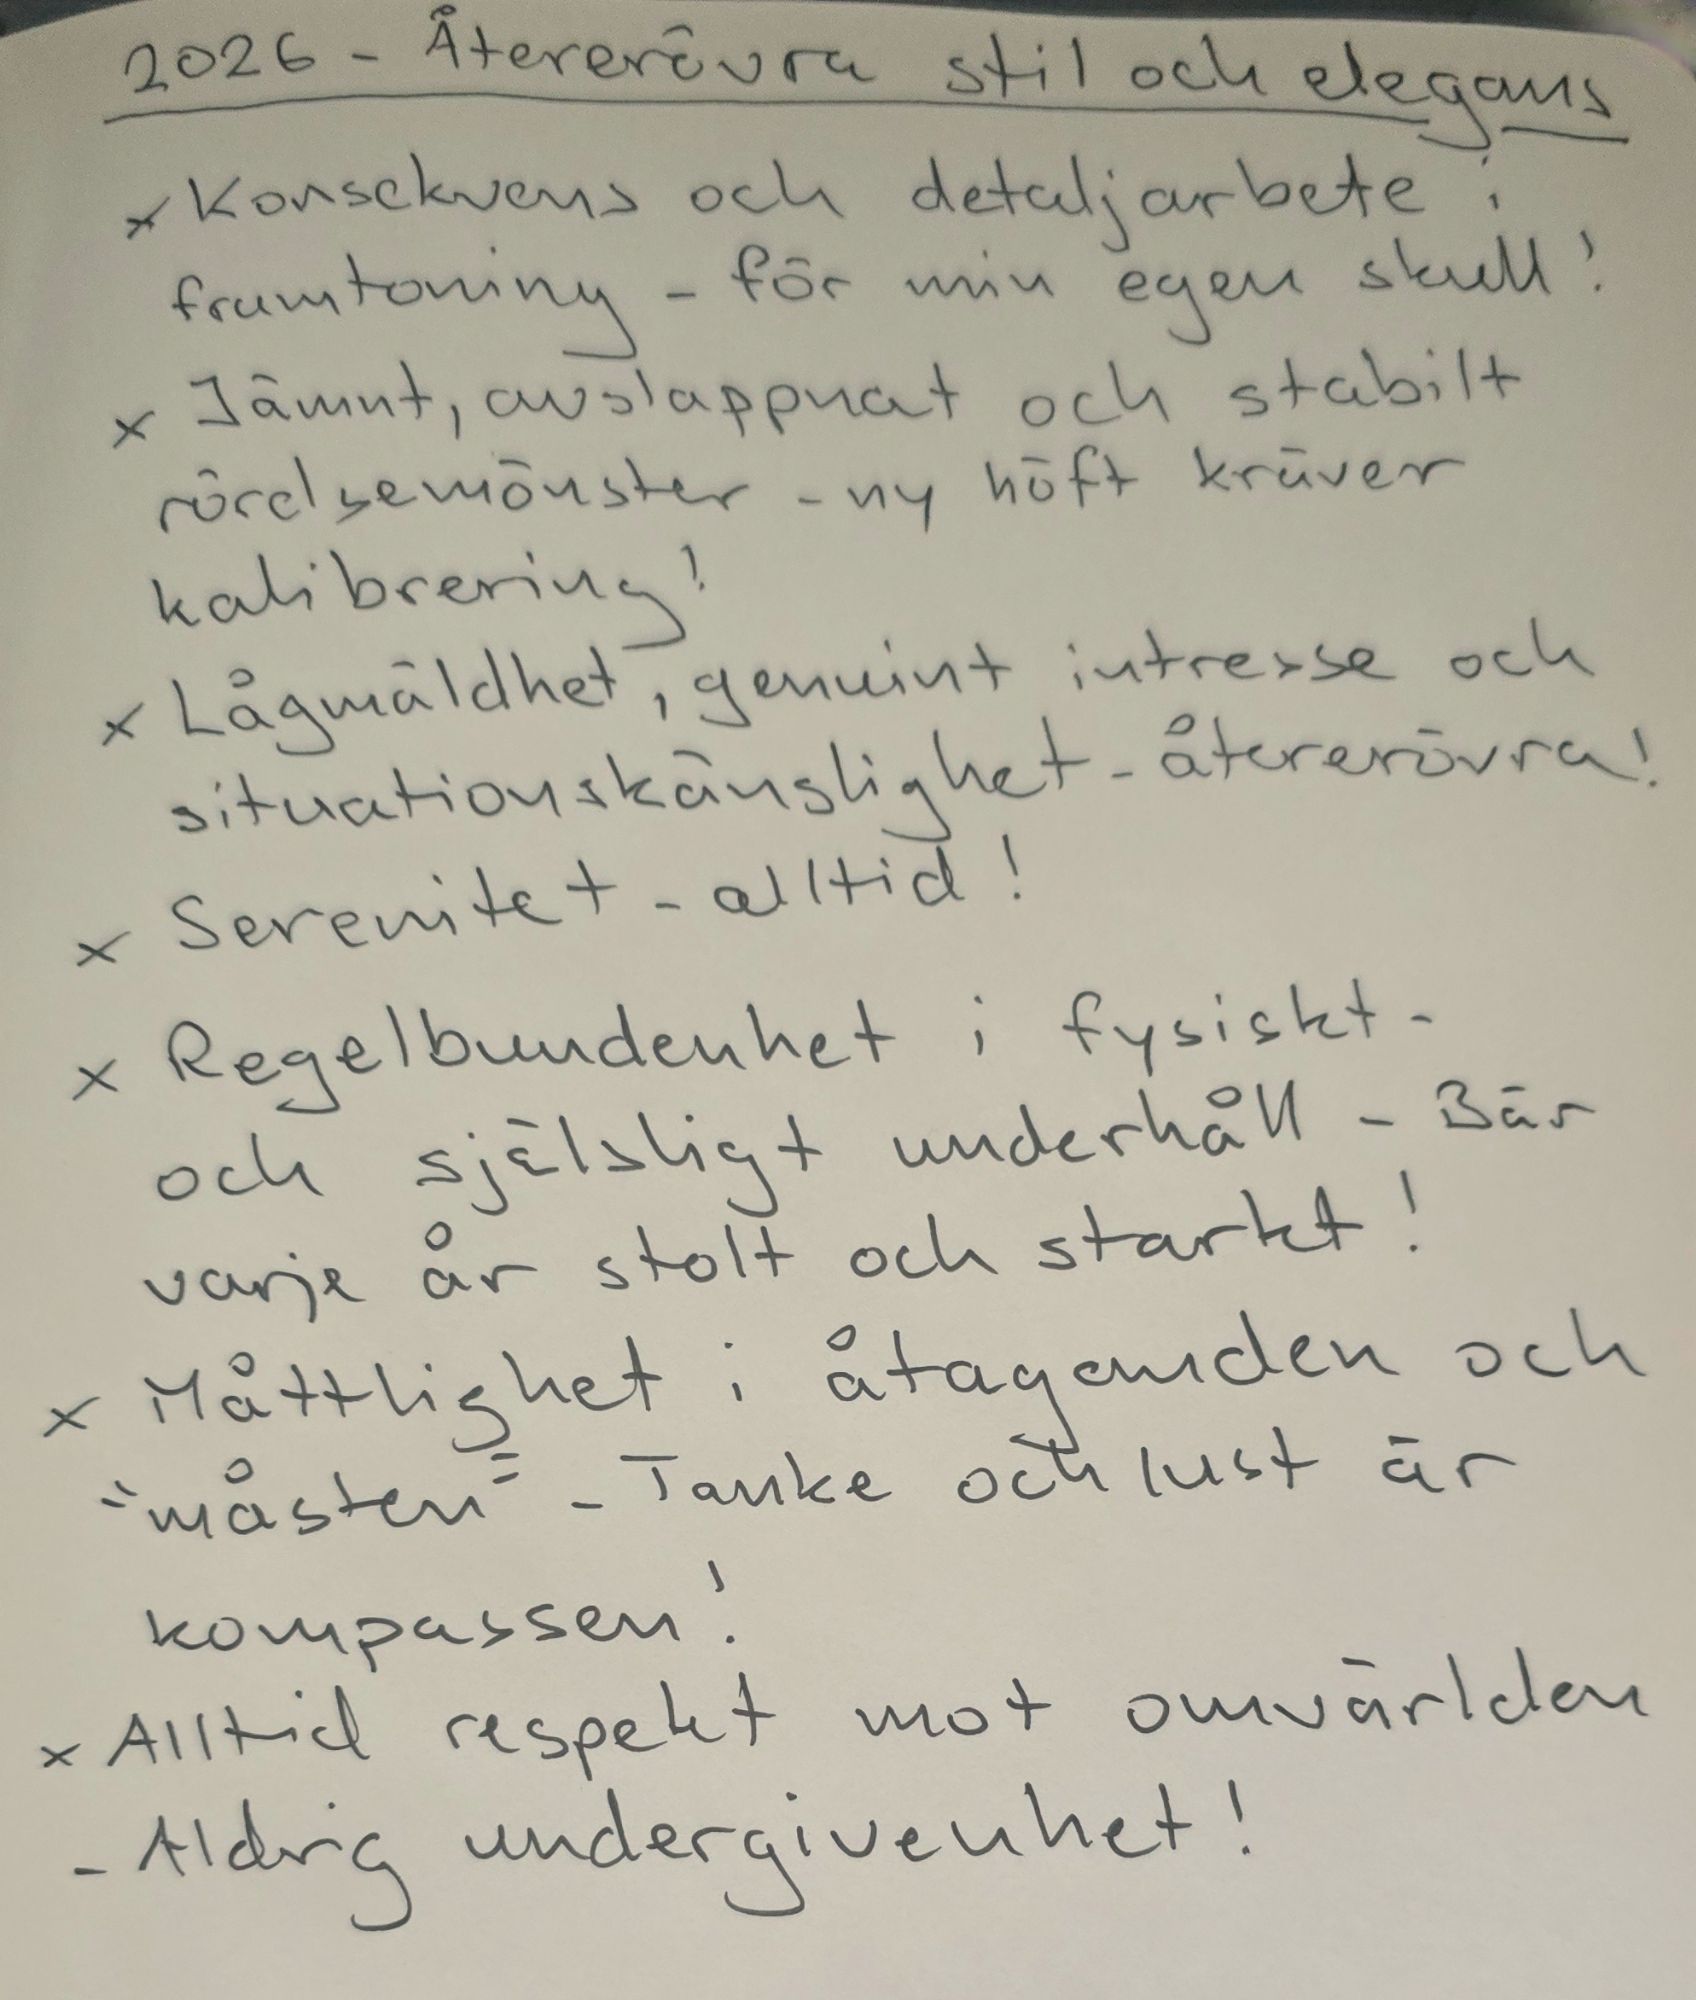 2026 - Återerövra stil och elegans
x Konsekvens och detaljarbete i
framtoning - för min egen skull!
x Jämnt, avslappnat och stabilt
rörelsemönster - ny höft kräver
kalibrering!
x Lågmäldhet, genuint intresse och
situationskänslighet - återerövra!
x Serenitet - alltid!
x Regelbundenhet i fysiskt-
och själsligt underhåll - Bär
varje år stolt och starkt!
x Måttlighet i åtaganden och
"måsten" - Tanke och lust är
kompassen!
x Alltid respekt mot omvärlden
- Aldrig undergivenhet!